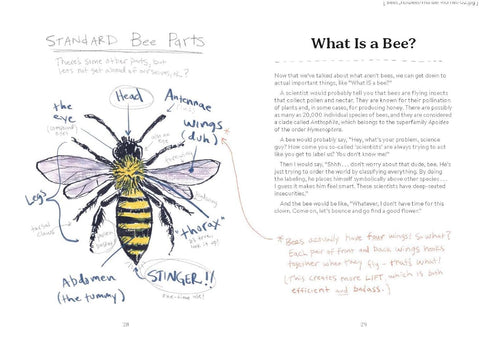 STANDARD Bee Parts
There's some other parts, but
lets not get ahead of ourselves, k..?
the
eye
(compound
eyes)
Head
Antennae
wings*
(duh)
Legs
"thorax"
Abdomen
(the tummy)
STINGER!!
one-time use!
28
What Is a Bee?
Now that we've talked about what aren't bees, we can get down to
actual important things, like "What IS a bee?"
A scientist would probably tell you that bees are flying insects
that collect pollen and nectar. They are known for their pollination
of plants and, in some cases, for producing honey. There are possibly
as many as 20,000 individual species of bees, and they are considered
a clade called Anthophila, which belongs to the superfamily Apoidea
of the order Hymenoptera.
A bee would probably say, "Hey, what's your problem, science
guy? How come you so-called 'scientists' are always trying to act
like you get to label us? You don't know me!"
Then I would say, "Shhh... don't worry about that dude, bee. He's
just trying to order the world by classifying everything. By doing
the labeling, he places himself symbolically above other species...
I guess it makes him feel smart. These scientists have deep-seated
insecurities."
And the bee would be like, "Whatever, I don't have time for this
clown. Come on, let's bounce and go find a good flower."
*Bees actually have four wings! So what?
Each pair of front and back wings hooks
together when they fly - that's what!
(This creates more LIFT, which is both
efficient and badass.)
29